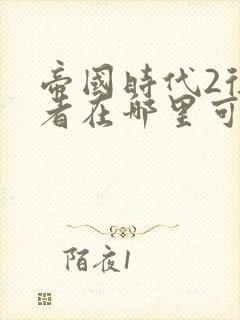 帝國時代2征
者在哪里可
陌夜1